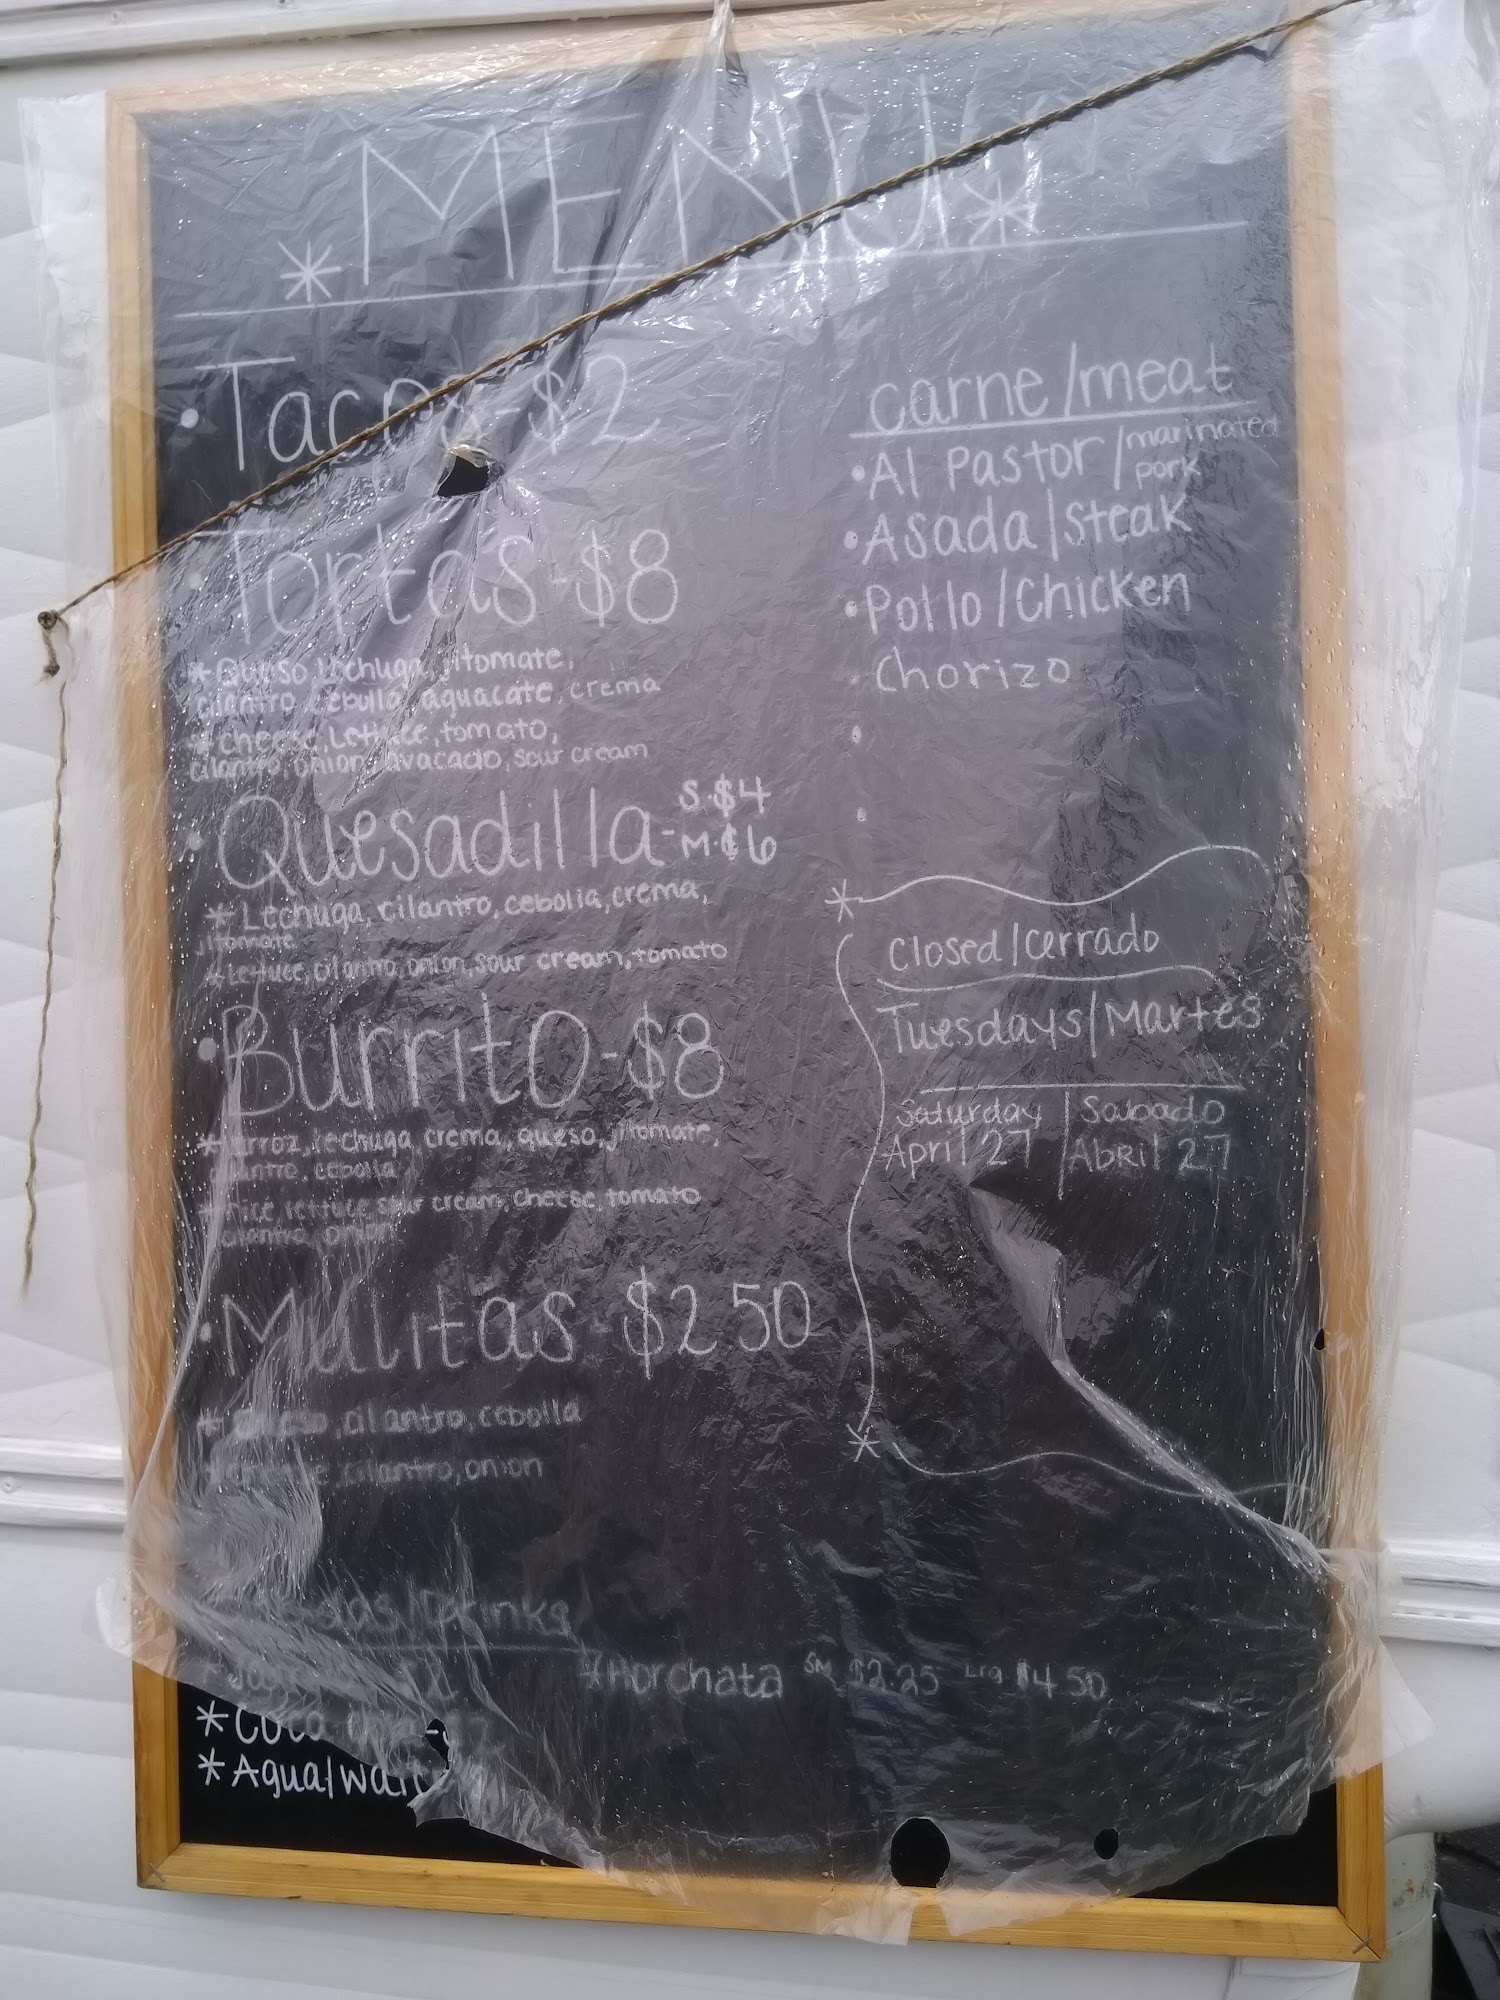 *MENU*
• Tacos - $2
• Tortas - $8
* Queso, Lechuga, jitomate,
cilantro, cebolla, aguacate, crema
* cheese, Lettuce, tomato,
cilantro, onion, avacado, sour cream
• Quesadilla - S. $4
M. $6
* Lechuga, cilantro, cebolla, crema,
jitomate
* Lettuce, cilantro, onion, sour cream, tomato
• Burrito - $8
* Arroz, lechuga, crema, queso, jitomate,
cilantro, cebolla
* Rice, lettuce, sour cream, cheese, tomato
cilantro, onion
• Mulitas - $2.50
* Queso, cilantro, cebolla
* cheese, cilantro, onion
/Drinks
* Horchata SM $2.25 Lrg $4.50
* Coca
* Agua/
carne/meat
• Al Pastor / marinated
pork
• Asada/steak
• Pollo/Chicken
• Chorizo
•
•
* Closed/Cerrado
Tuesdays/Martes
Saturday | Sabado
April 27 | Abril 27
*